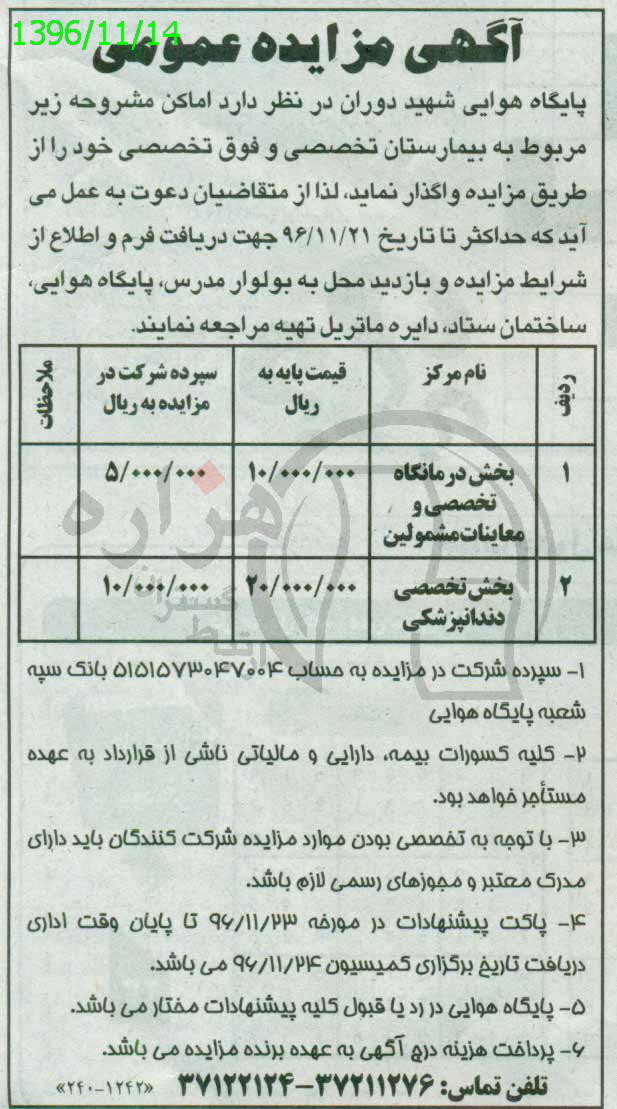 1396/11/14
آگهی مزایده عمومی
پایگاه هوایی شهید دوران در نظر دارد اماکن مشروحه زیر
مربوط به بیمارستان تخصصی و فوق تخصصی خود را از
طریق مزایده واگذار نماید، لذا از متقاضیان دعوت به عمل می
آید که حداکثر تا تاریخ ۹۶/۱۱/۲۱ جهت دریافت فرم و اطلاع از
شرایط مزایده و بازدید محل به بولوار مدرس، پایگاه هوایی،
ساختمان ستاد، دایره ماتریل تهیه مراجعه نمایند.
ردیف
نام مرکز
قیمت پایه به
ریال
سپرده شرکت در
مزایده به ریال
ملاحظات
۱
بخش درمانگاه
تخصصی و
معاینات مشمولین
۱۰/۰۰۰/۰۰۰
۵/۰۰۰/۰۰۰
۲
بخش تخصصی
دندانپزشکی
۲۰/۰۰۰/۰۰۰
۱۰/۰۰۰/۰۰۰
هزاره
۱- سپرده شرکت در مزایده به حساب ۵۱۵۱۵۷۳۰۴۷۰۰۴ بانک سپه
شعبه پایگاه هوایی
۲- کلیه کسورات بیمه، دارایی و مالیاتی ناشی از قرارداد به عهده
مستأجر خواهد بود.
۳- با توجه به تخصصی بودن موارد مزایده شرکت کنندگان باید دارای
مدرک معتبر و مجوزهای رسمی لازم باشد.
۴- پاکت پیشنهادات در مورخه ۹۶/۱۱/۲۳ تا پایان وقت اداری
دریافت تاریخ برگزاری کمیسیون ۹۶/۱۱/۲۴ می باشد.
۵- پایگاه هوایی در رد یا قبول کلیه پیشنهادات مختار می باشد.
۶- پرداخت هزینه درج آگهی به عهده برنده مزایده می باشد.
تلفن تماس: ۳۷۲۱۱۲۷۶-۳۷۱۲۲۱۲۴ «۲۴۰-۱۲۴۲»